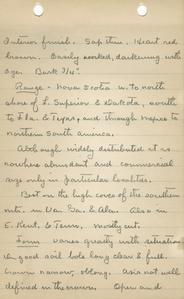 interior finish. Sap thin. Heart red
brown. Easily worked, darkening with
age. Bark 3/4".
Range - Nova Scotia w. to north
shore of L. Superior & Dakota, south
to Fla. & Texas, and through Mexico to
northern South America.
Although widely distributed it is
nowhere abundant and commercial
size only in particular localities.
Best on the high coves of the southern
mts. in Va. Ga. & Ala. Also in
E. Kent. & Tenn. Mostly cut.
Form varies greatly with situation
On good soil bole long clear & full.
Crown narrow, oblong. Axis not well
defined in the crown. Open and